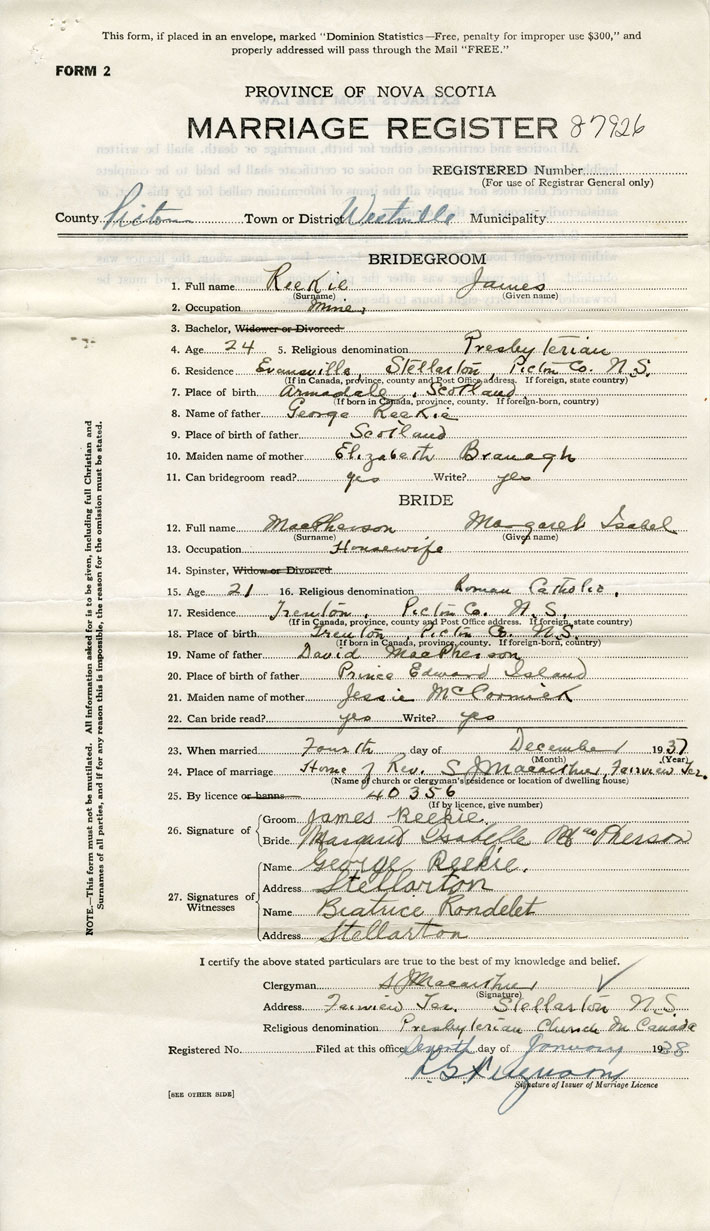 This form, if placed in an envelope, marked "Dominion Statistics—Free, penalty for improper use $300," and
properly addressed will pass through the Mail "FREE."
FORM 2
PROVINCE OF NOVA SCOTIA
MARRIAGE REGISTER 87926
REGISTERED Number
(For use of Registrar General only)
County Pictou Town or District Westville Municipality
BRIDEGROOM
1. Full name Reekie James
(Surname) (Given name)
2. Occupation Miner
3. Bachelor, Widower or Divorced.
4. Age 24 5. Religious denomination Presbyterian
6. Residence Evansville, Stellarton, Pictou Co. N.S.
(If in Canada, province, county and Post Office address. If foreign, state country)
7. Place of birth Armadale, Scotland
(If born in Canada, province, county. If foreign-born, country)
8. Name of father George Reekie
9. Place of birth of father Scotland
10. Maiden name of mother Elizabeth Branagh
11. Can bridegroom read? yes Write? yes
BRIDE
12. Full name MacPherson Margaret Isabel
(Surname) (Given name)
13. Occupation Housewife
14. Spinster, Widow or Divorced
15. Age 21 16. Religious denomination Roman Catholic.
17. Residence Trenton, Pictou Co. N.S.
(If in Canada, province, county and Post Office address. If foreign, state country)
18. Place of birth Trenton, Pictou Co. N.S.
(If born in Canada, province, county. If foreign-born, country)
19. Name of father David MacPherson
20. Place of birth of father Prince Edward Island
21. Maiden name of mother Jessie McCormick
22. Can bride read? yes Write? yes
23. When married Fourth day of December 1937
(Month) (Year)
24. Place of marriage Home of Rev. S J Macarthur, Fairview Ter.
(Name of church or clergyman's residence or location of dwelling house)
25. By licence or banns 40356
(If by licence, give number)
26. Signature of
Groom James Reekie
Bride Margaret Isabelle MacPherson
27. Signatures of Witnesses
Name George Reekie.
Address Stellarton
Name Beatrice Rondelet
Address Stellarton
I certify the above stated particulars are true to the best of my knowledge and belief.
Clergyman S J Macarthur
(Signature)
Address Fairview Ter. Stellarton N.S.
Religious denomination Presbyterian Church In Canada
Registered No. Filed at this office Seventh day of January 1938
Ferguson
Signature of Issuer of Marriage Licence
[SEE OTHER SIDE]
NOTE.—This form must not be mutilated. All information asked for is to be given, including full Christian and
Surnames of all parties, and if for any reason this is impossible, the reason for the omission must be stated.